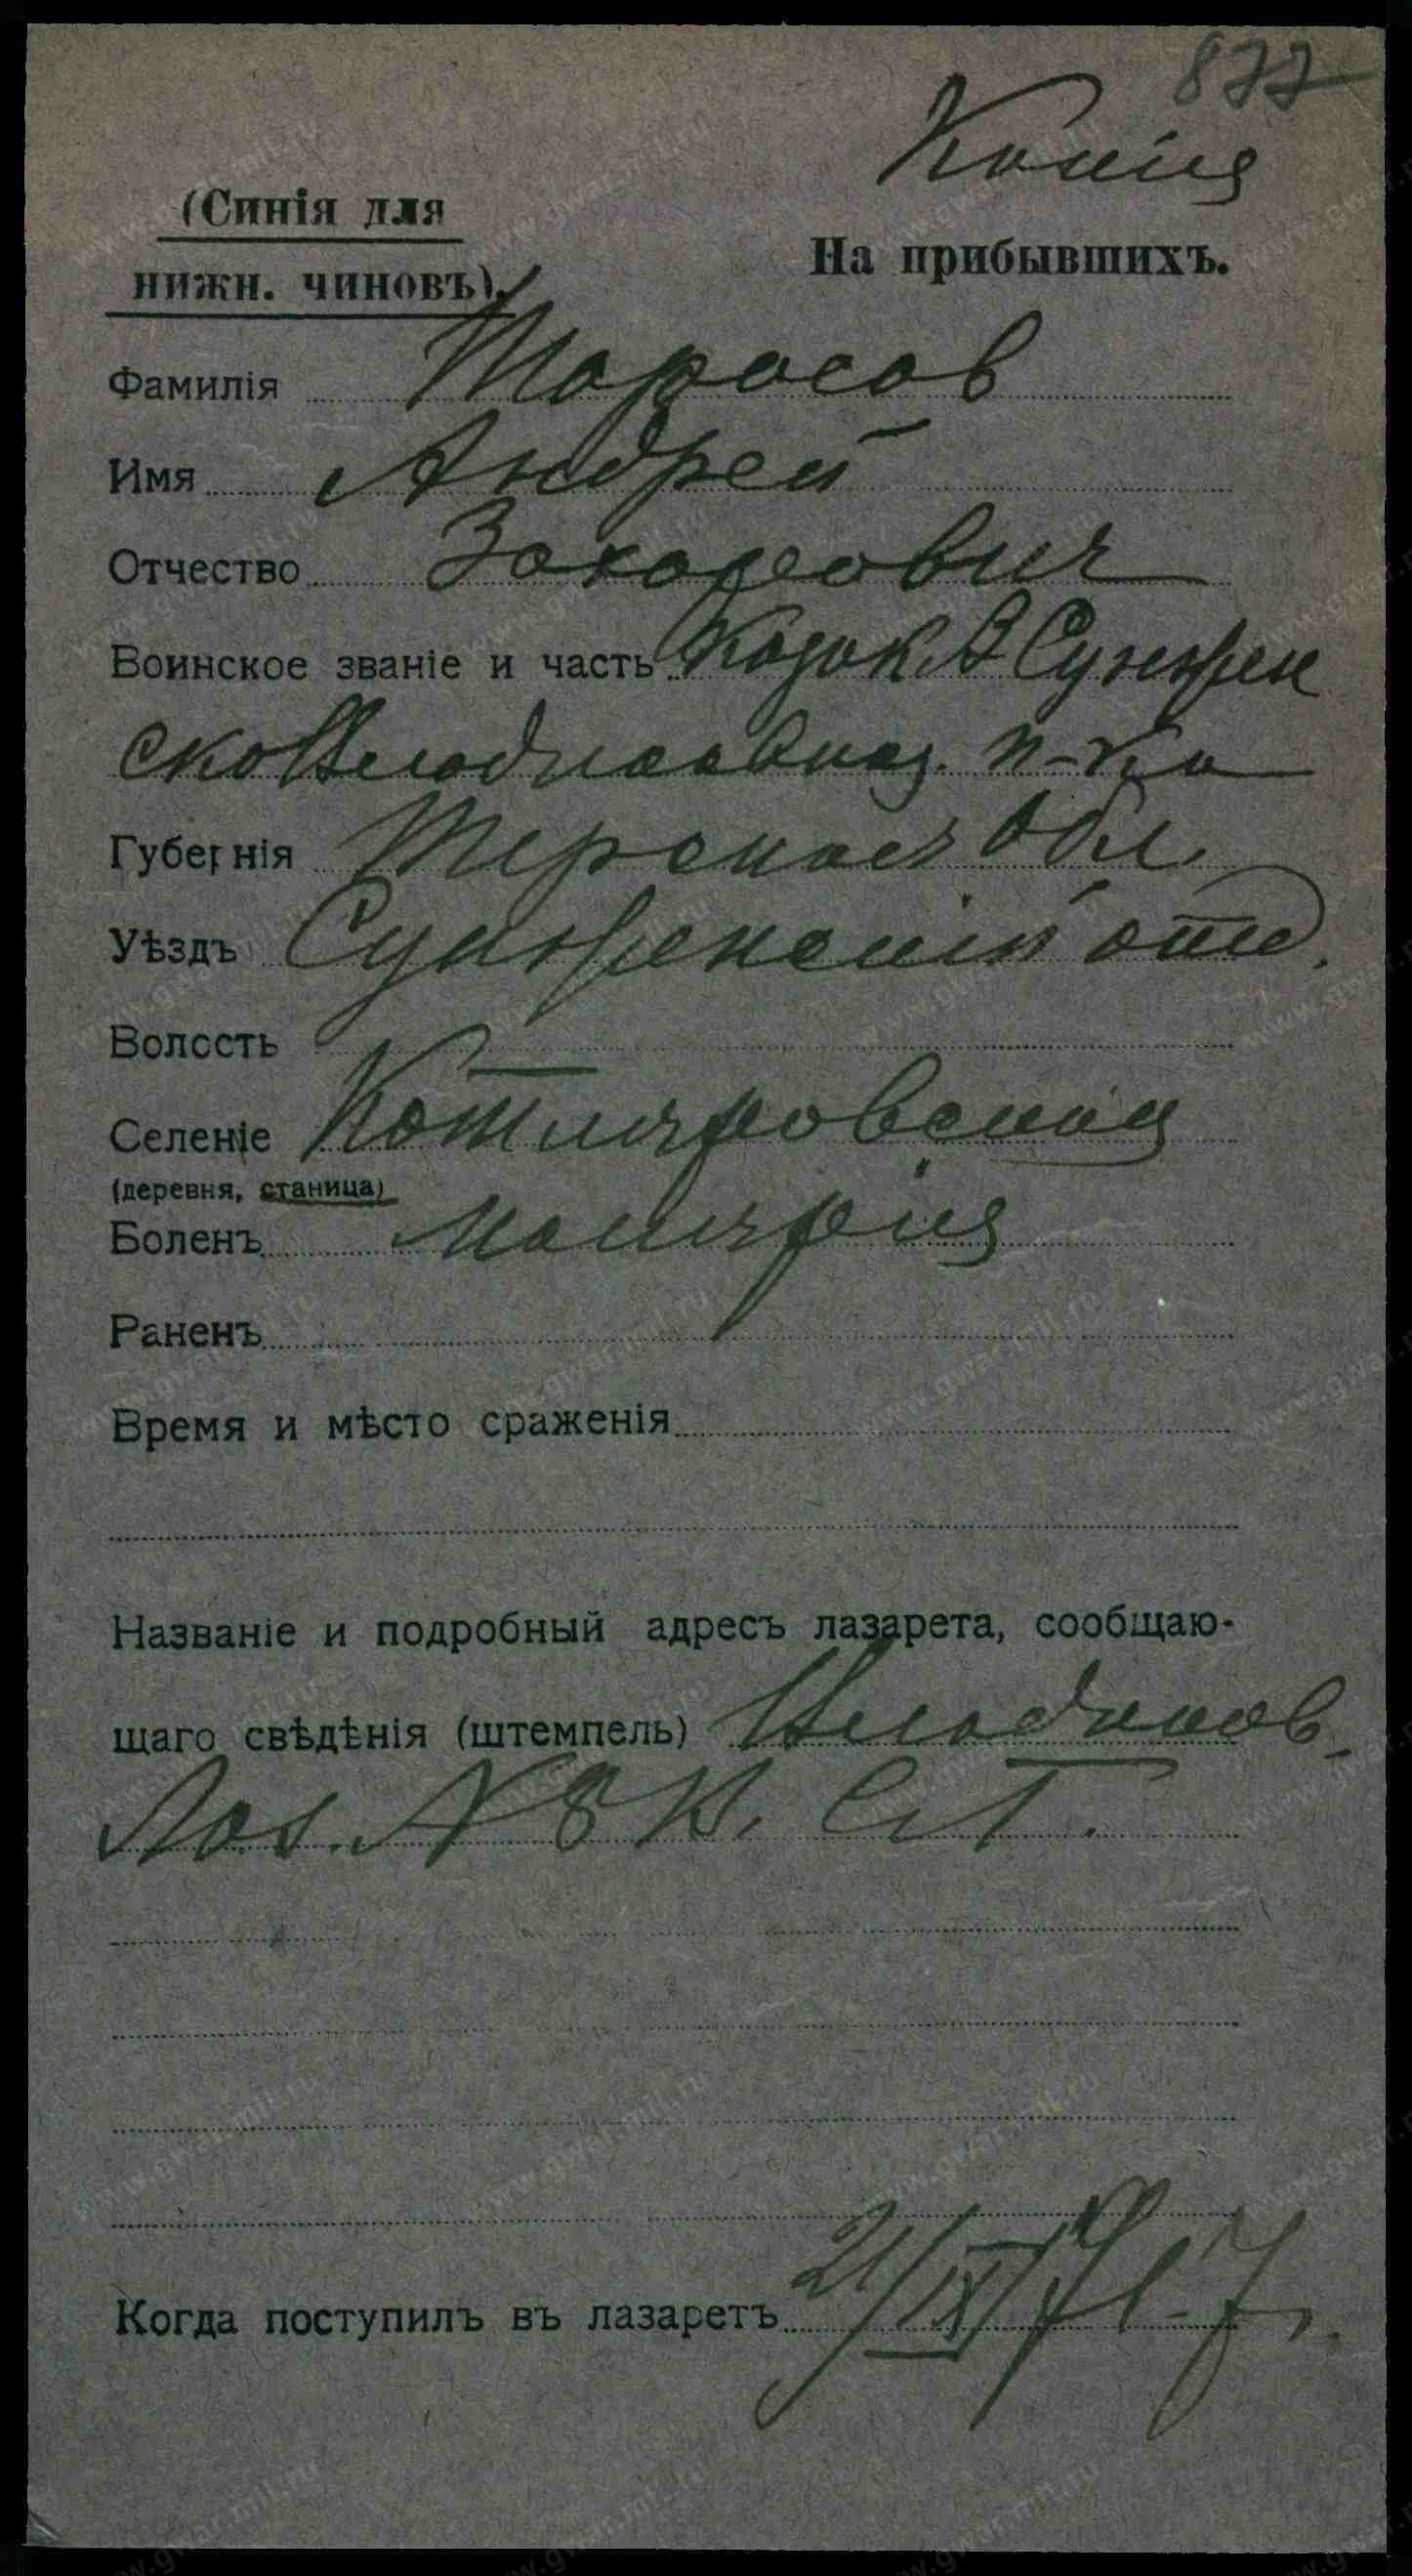 877
Копія
(Синія для
нижн. чиновъ).
На прибывшихъ.
Фамилія Тарасов
Имя Андрей
Отчество Захарович
Воинское званіе и часть Козак 3 Сунжен
ско Владикавказ. п-ка
Губернія Терская Обл.
Уѣздъ Сунженскій отд.
Волость —
Селеніе Котляровская
(деревня, станица)
Боленъ малярія
Раненъ
Время и мѣсто сраженія
Названіе и подробный адресъ лазарета, сообщаю-
щаго свѣдѣнія (штемпель) Владикав.
Лаз. № 8
Когда поступилъ въ лазаретъ 21/IX